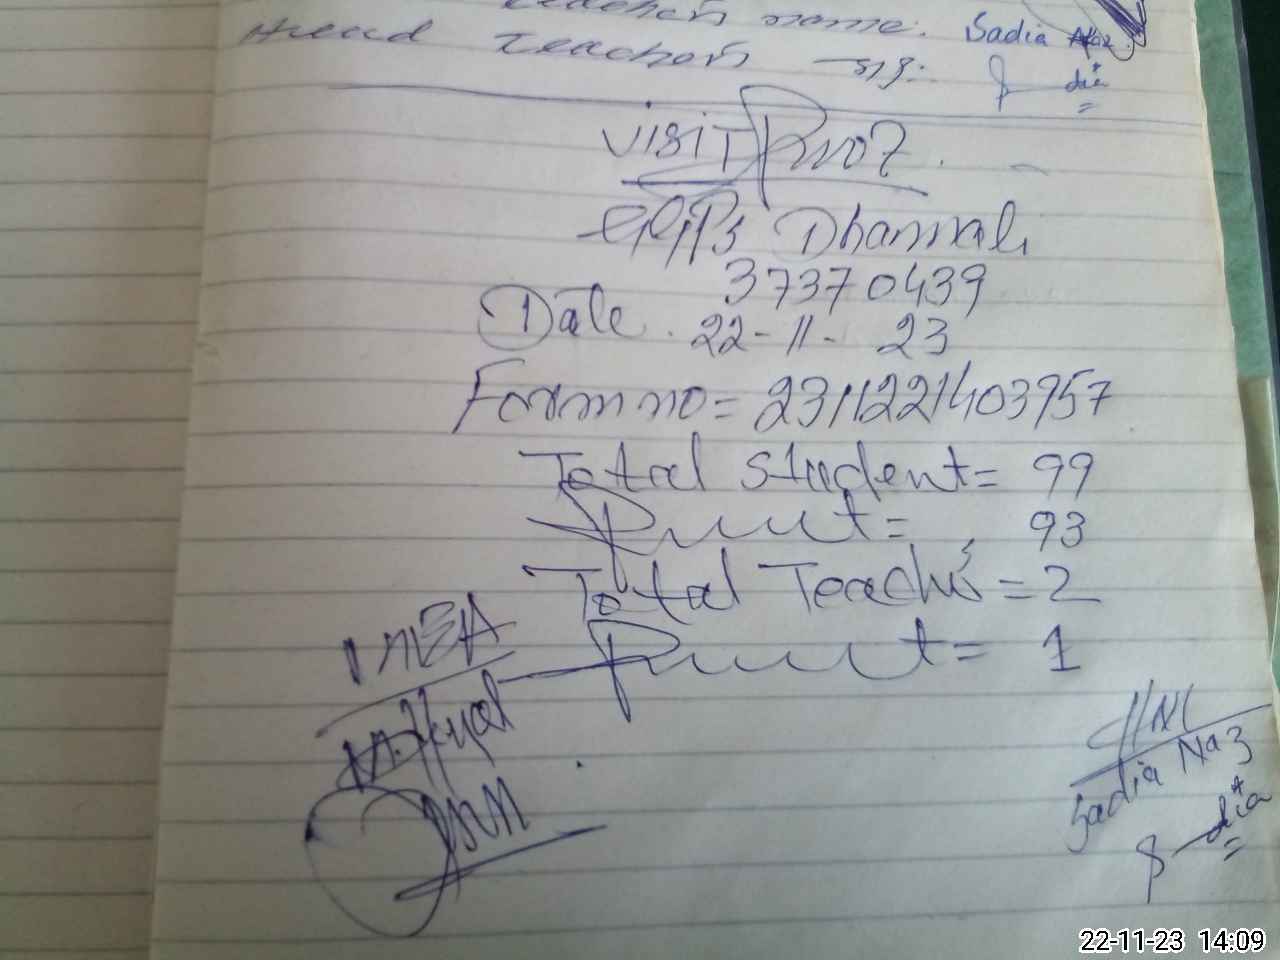 Teacher name: Sadia Naz
Head Teacher sig:
Visit Proof
GGPS Dhamali
37370439
Date. 22-11-23
Form no = 2311221403957
Total Student = 99
Present = 93
Total Teacher = 2
Present = 1
MEA
H/N
Sadia Naz
22-11-23 14:09